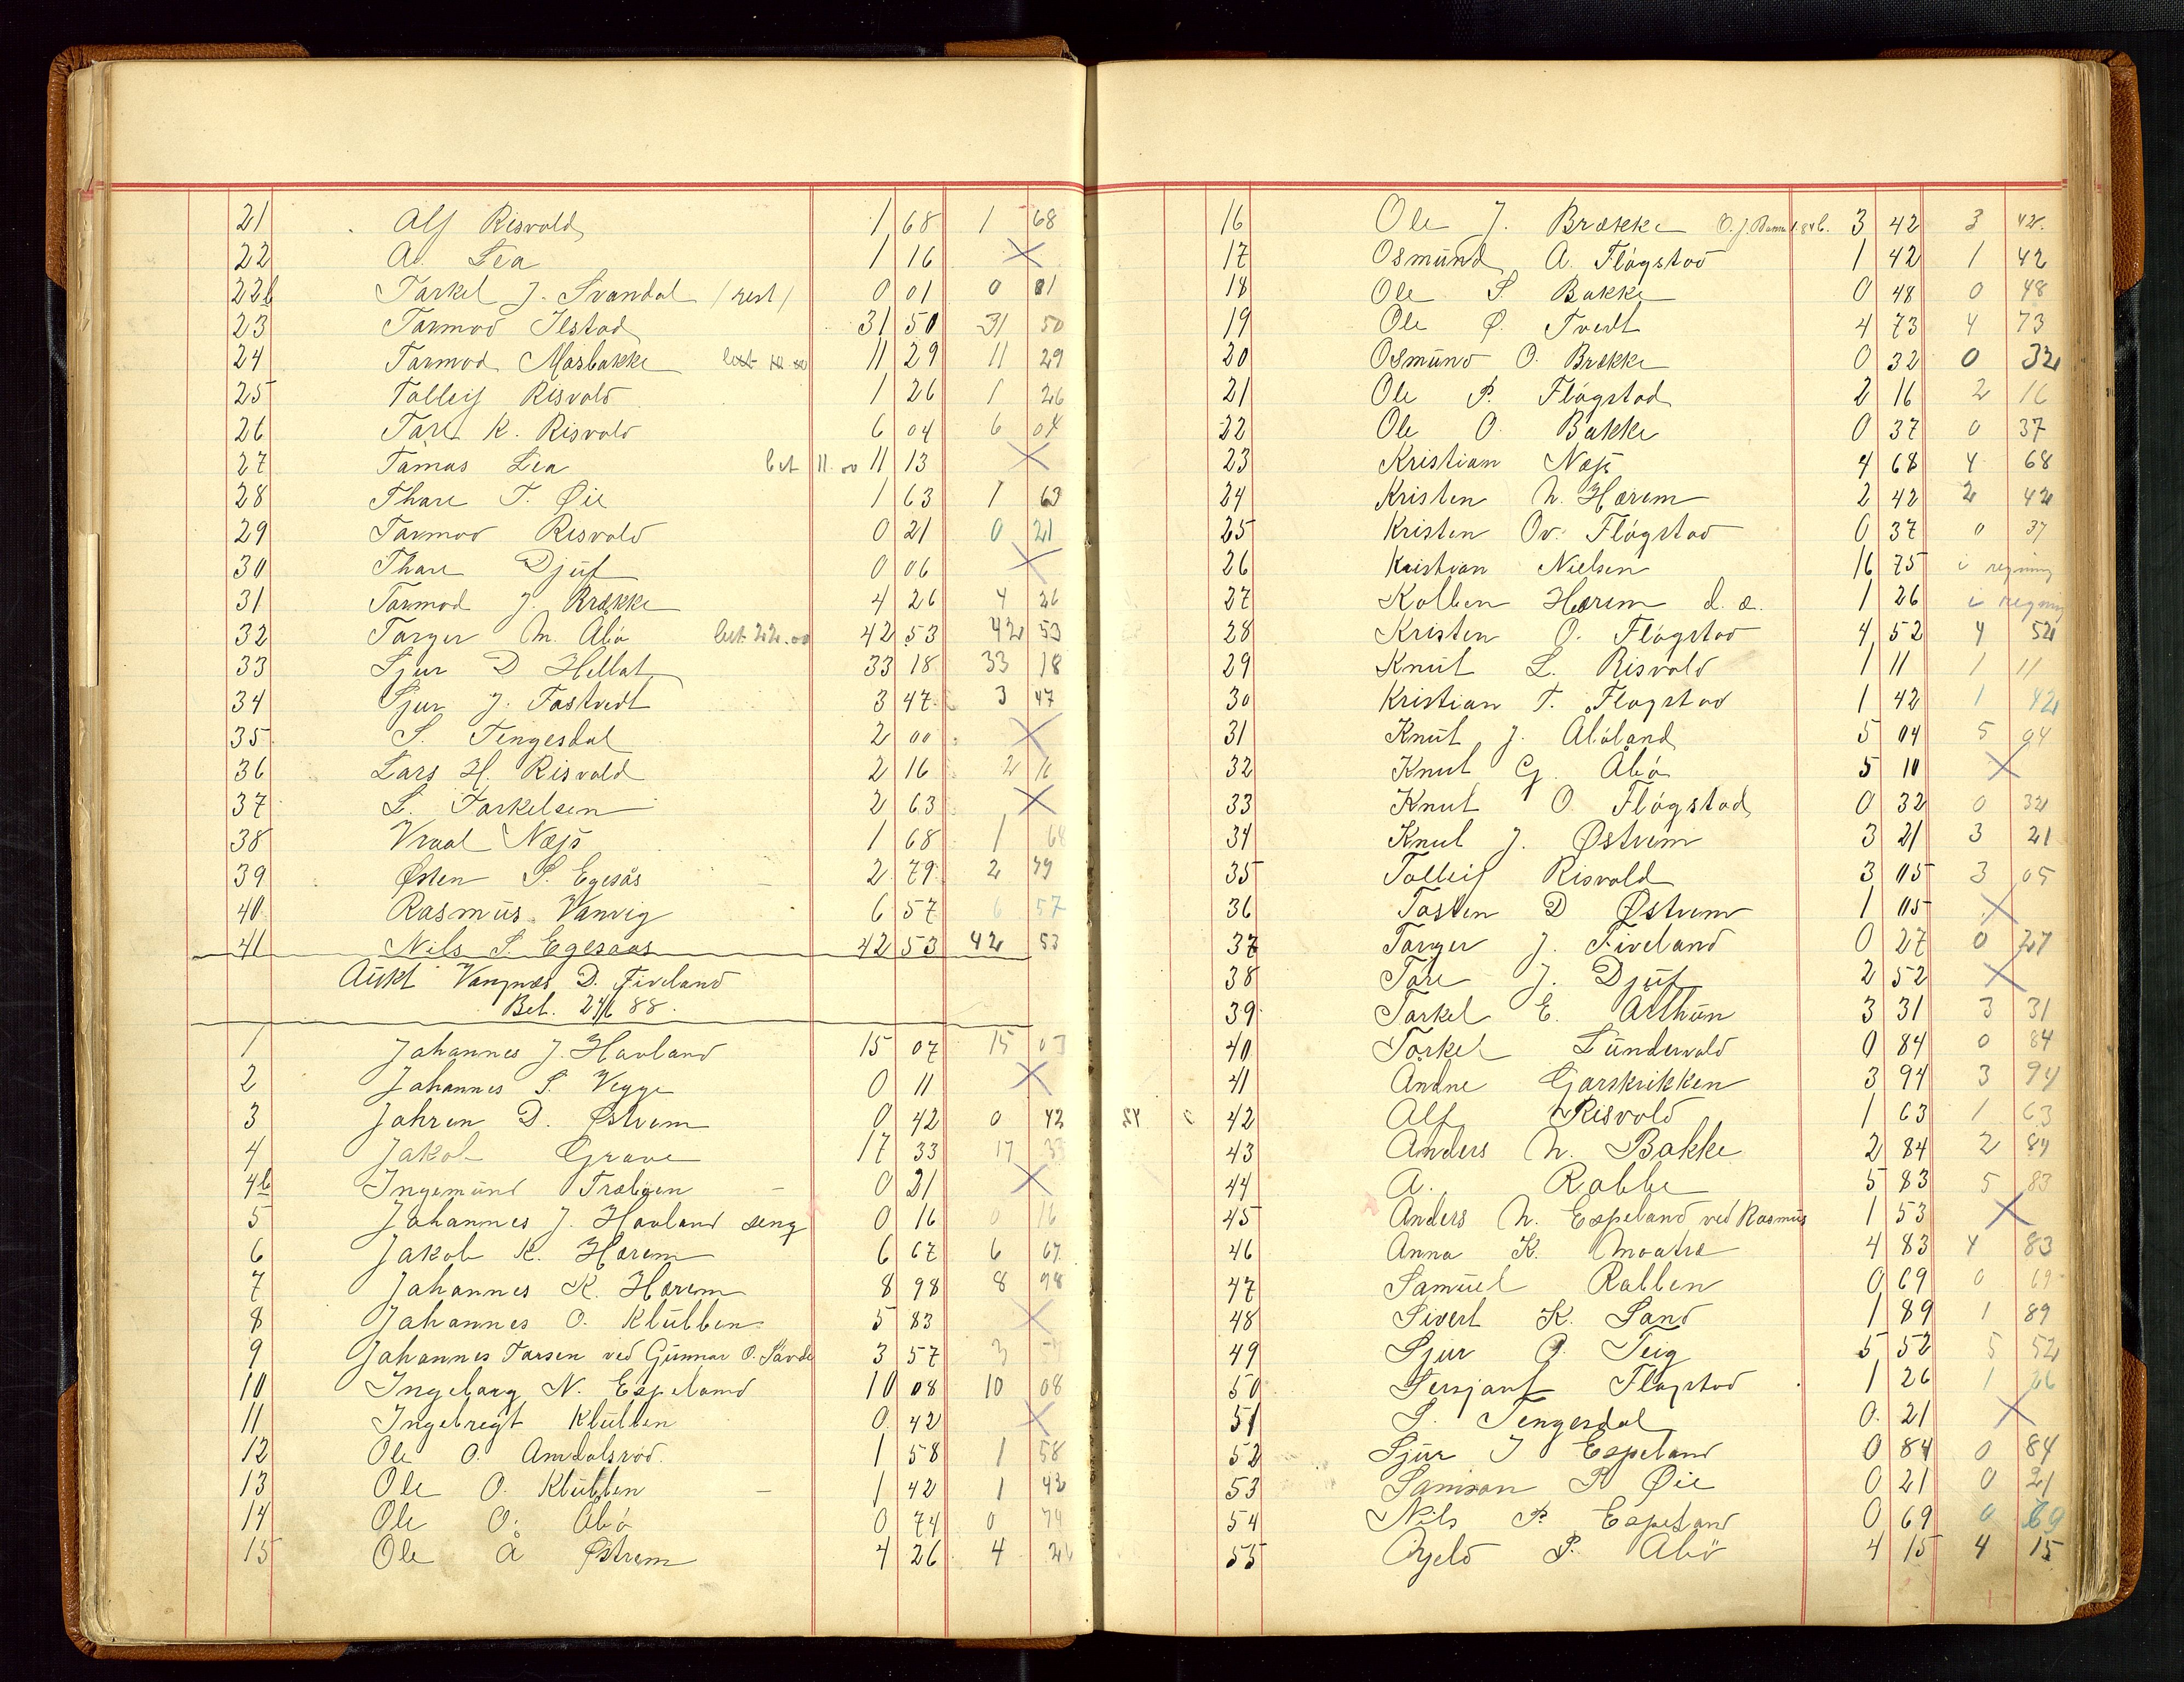 21 Alf Risvold 1 68 1 68
22 A. Lea 1 16 X
22b Tarkel J. Svandal / rest / 0 01 0 01
23 Tarmod Ilstad 31 50 31 50
24 Tarmod Møsbakke 11 29 11 29
25 Tolleif Risvold 1 26 1 26
26 Tore K. Risvold 6 04 6 04
27 Tamas Lea bet 11.00 11 13 X
28 Thore T. Øie 1 63 1 63
29 Tarmod Risvold 0 21 0 21
30 Thore Djuf 0 06 X
31 Tarmod J. Brække 4 26 4 26
32 Targer M. Abø bet 22.00 42 53 42 53
33 Sjur D Hellat 33 18 33 18
34 Sjur J. Fastvedt 3 47 3 47
35 S. Tengesdal 2 00 X
36 Lars H. Risvold 2 16 2 16
37 L. Tarkelsen 2 63 X
38 Vraal Næss 1 68 1 68
39 Østen S. Egesås 2 79 2 79
40 Rasmus Vanvig 6 57 6 57
41 Nils S. Egesaas 42 53 42 53
Aukt Vangnæs D. Fiveland
Bet. 24/6 88.
1 Johannes J. Havland 15 07 15 07
2 Johannes S. Vegge 0 11 X
3 Jahren D. Østrem 0 42 0 42
4 Jakob Grave 17 33 17 33
4b Ingemund Træbøen 0 21 X
5 Johannes J. Havland seng 0 16 0 16
6 Jakob K. Hærem 6 67 6 67
7 Johannes K. Hærem 8 98 8 98
8 Johannes O. Klubben 5 83 X
9 Johannes Tarsen ved Gunnar O. Søvde 3 57 3 57
10 Ingeborg N. Espeland 10 08 10 08
11 Ingebregt Klubben 0 42 X
12 Ole O. Amdalsrød. 1 58 1 58
13 Ole O. Klubben 1 42 1 42
14 Ole O. Abø 0 74 0 74
15 Ole Å Østrem 4 26 4 26
16 Ole J. Brække 3 42 3 42
17 Osmund A. Fløgstad 1 42 1 42
18 Ole S. Bakke 0 48 0 48
19 Ole Ø. Tvedt 4 73 4 73
20 Osmund O. Brække 0 32 0 32
21 Ole P. Fløgstad 2 16 2 16
22 Ole O. Bakke 0 37 0 37
23 Kristian Næss 4 68 4 68
24 Kristen N. Hærem 2 42 2 42
25 Kristen Ov. Fløgstad 0 37 0 37
26 Kristian Nielsen 16 75 i regning
27 Kolben Hærem d. æ. 1 26 i regning
28 Kristen O. Fløgstad 4 52 4 52
29 Knut L. Risvold 1 11 1 11
30 Kristian T. Fløgstad 1 42 1 42
31 Knut J. Abøland 5 04 5 04
32 Knut G. Abø 5 10 X
33 Knut O. Fløgstad 0 32 0 32
34 Knut J. Østrem 3 21 3 21
35 Tolleif Risvold 3 05 3 05
36 Tosten D Østrem 1 05 X
37 Targer J. Fiveland 0 27 0 27
38 Tore J. Djuf 2 52 X
39 Tarkel E. Arthun 3 31 3 31
40 Torkel Sundervold 0 84 0 84
41 Andne Gjarskrikken 3 94 3 94
42 Alf Risvold 1 63 1 63
43 Anders N. Bakke 2 84 2 84
44 A. Rabbe 5 83 5 83
45 Anders N. Espeland ved Rasmus 1 53 X
46 Anna K. Moatræ 4 83 4 83
47 Samuel Rabben 0 69 0 69
48 Sivert K. Sand 1 89 1 89
49 Sjur O. Teig 5 52 5 52
50 Sersjant Fløgstad 1 26 1 26
51 S. Tengesdal 0 21 X
52 Sjur I Espeland 0 84 0 84
53 Samson P Øie 0 21 0 21
54 Nils P. Espeland 0 69 0 69
55 Øjelo P. Abø 4 15 4 15